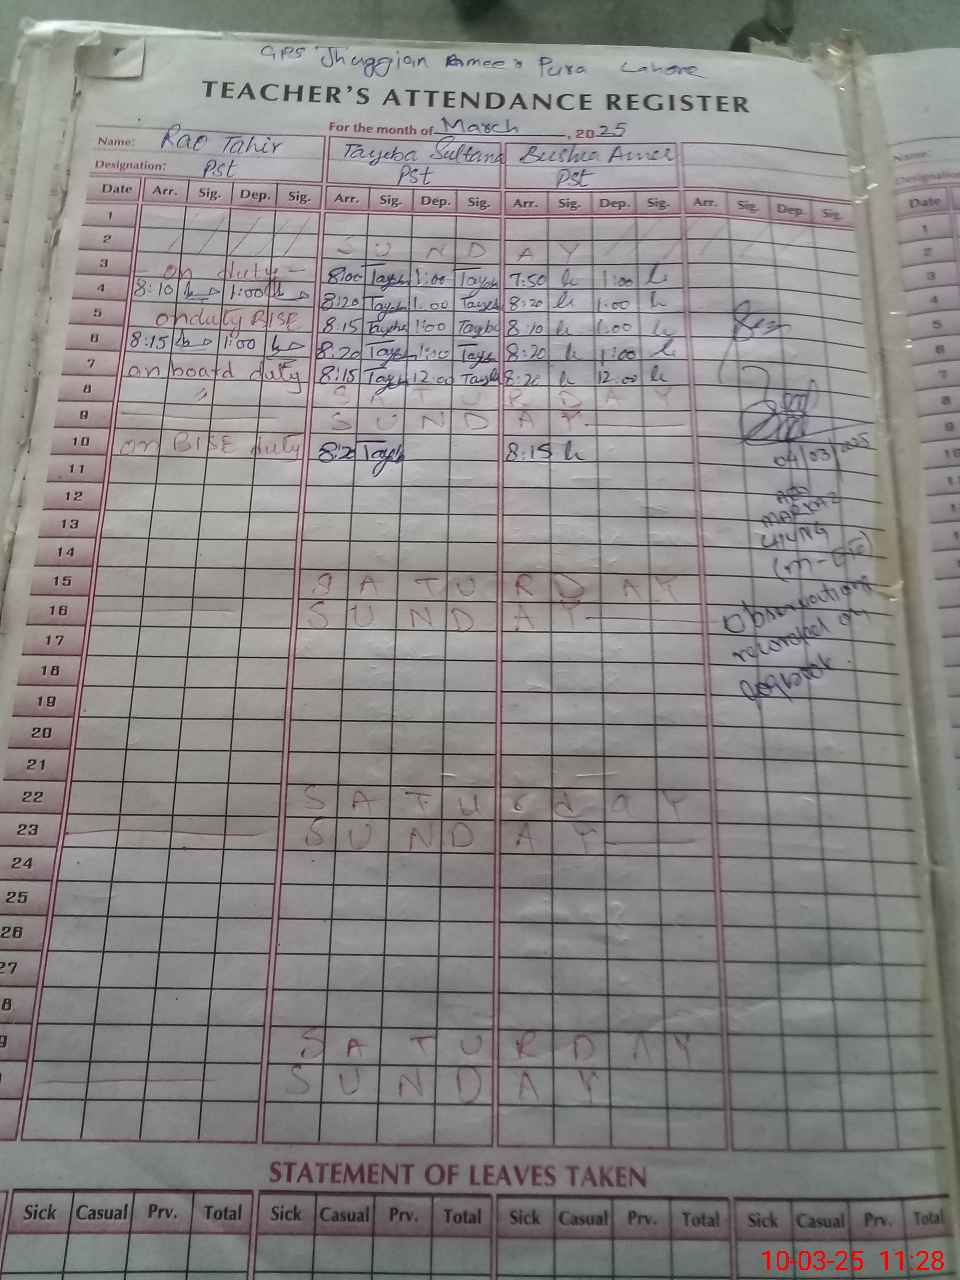 GPS Jhuggian Ameer Pura Lahore
TEACHER'S ATTENDANCE REGISTER
For the month of March, 2025
Name: Rao Tahir Tayeba Sultana Bushra Amer
Designation: Pst Pst Pst
Date Arr. Sig. Dep. Sig. Arr. Sig. Dep. Sig. Arr. Sig. Dep. Sig. Arr. Sig. Dep. Sig.
1
2 SUNDAY
3 on duty 8:00 1:00 7:50 1:00
4 8:10 1:00 8:20 1:00 8:20 1:00
5 on duty BISE 8:15 1:00 8:10 1:00
6 8:15 1:00 8:20 1:00 8:20 1:00
7 on board duty 8:15 12:00 8:20 12:00
8 " SATURDAY
9 SUNDAY
10 on BISE duty 8:20 8:15
04/03/2025
11
12
MARKAZ
13
CHUNG
14
15 SATURDAY
16 SUNDAY
Observations
17
recorded on
18
logbook.
19
20
21
22 SATUrdaY
23 SUNDAY
24
25
26
27
8
9 SATURDAY
SUNDAY
STATEMENT OF LEAVES TAKEN
Sick Casual Prv. Total Sick Casual Prv. Total Sick Casual Prv. Total Sick Casual Prv. Total
Name:
Designation
Date
1
2
3
4
5
6
7
8
9
10
10-03-25 11:28